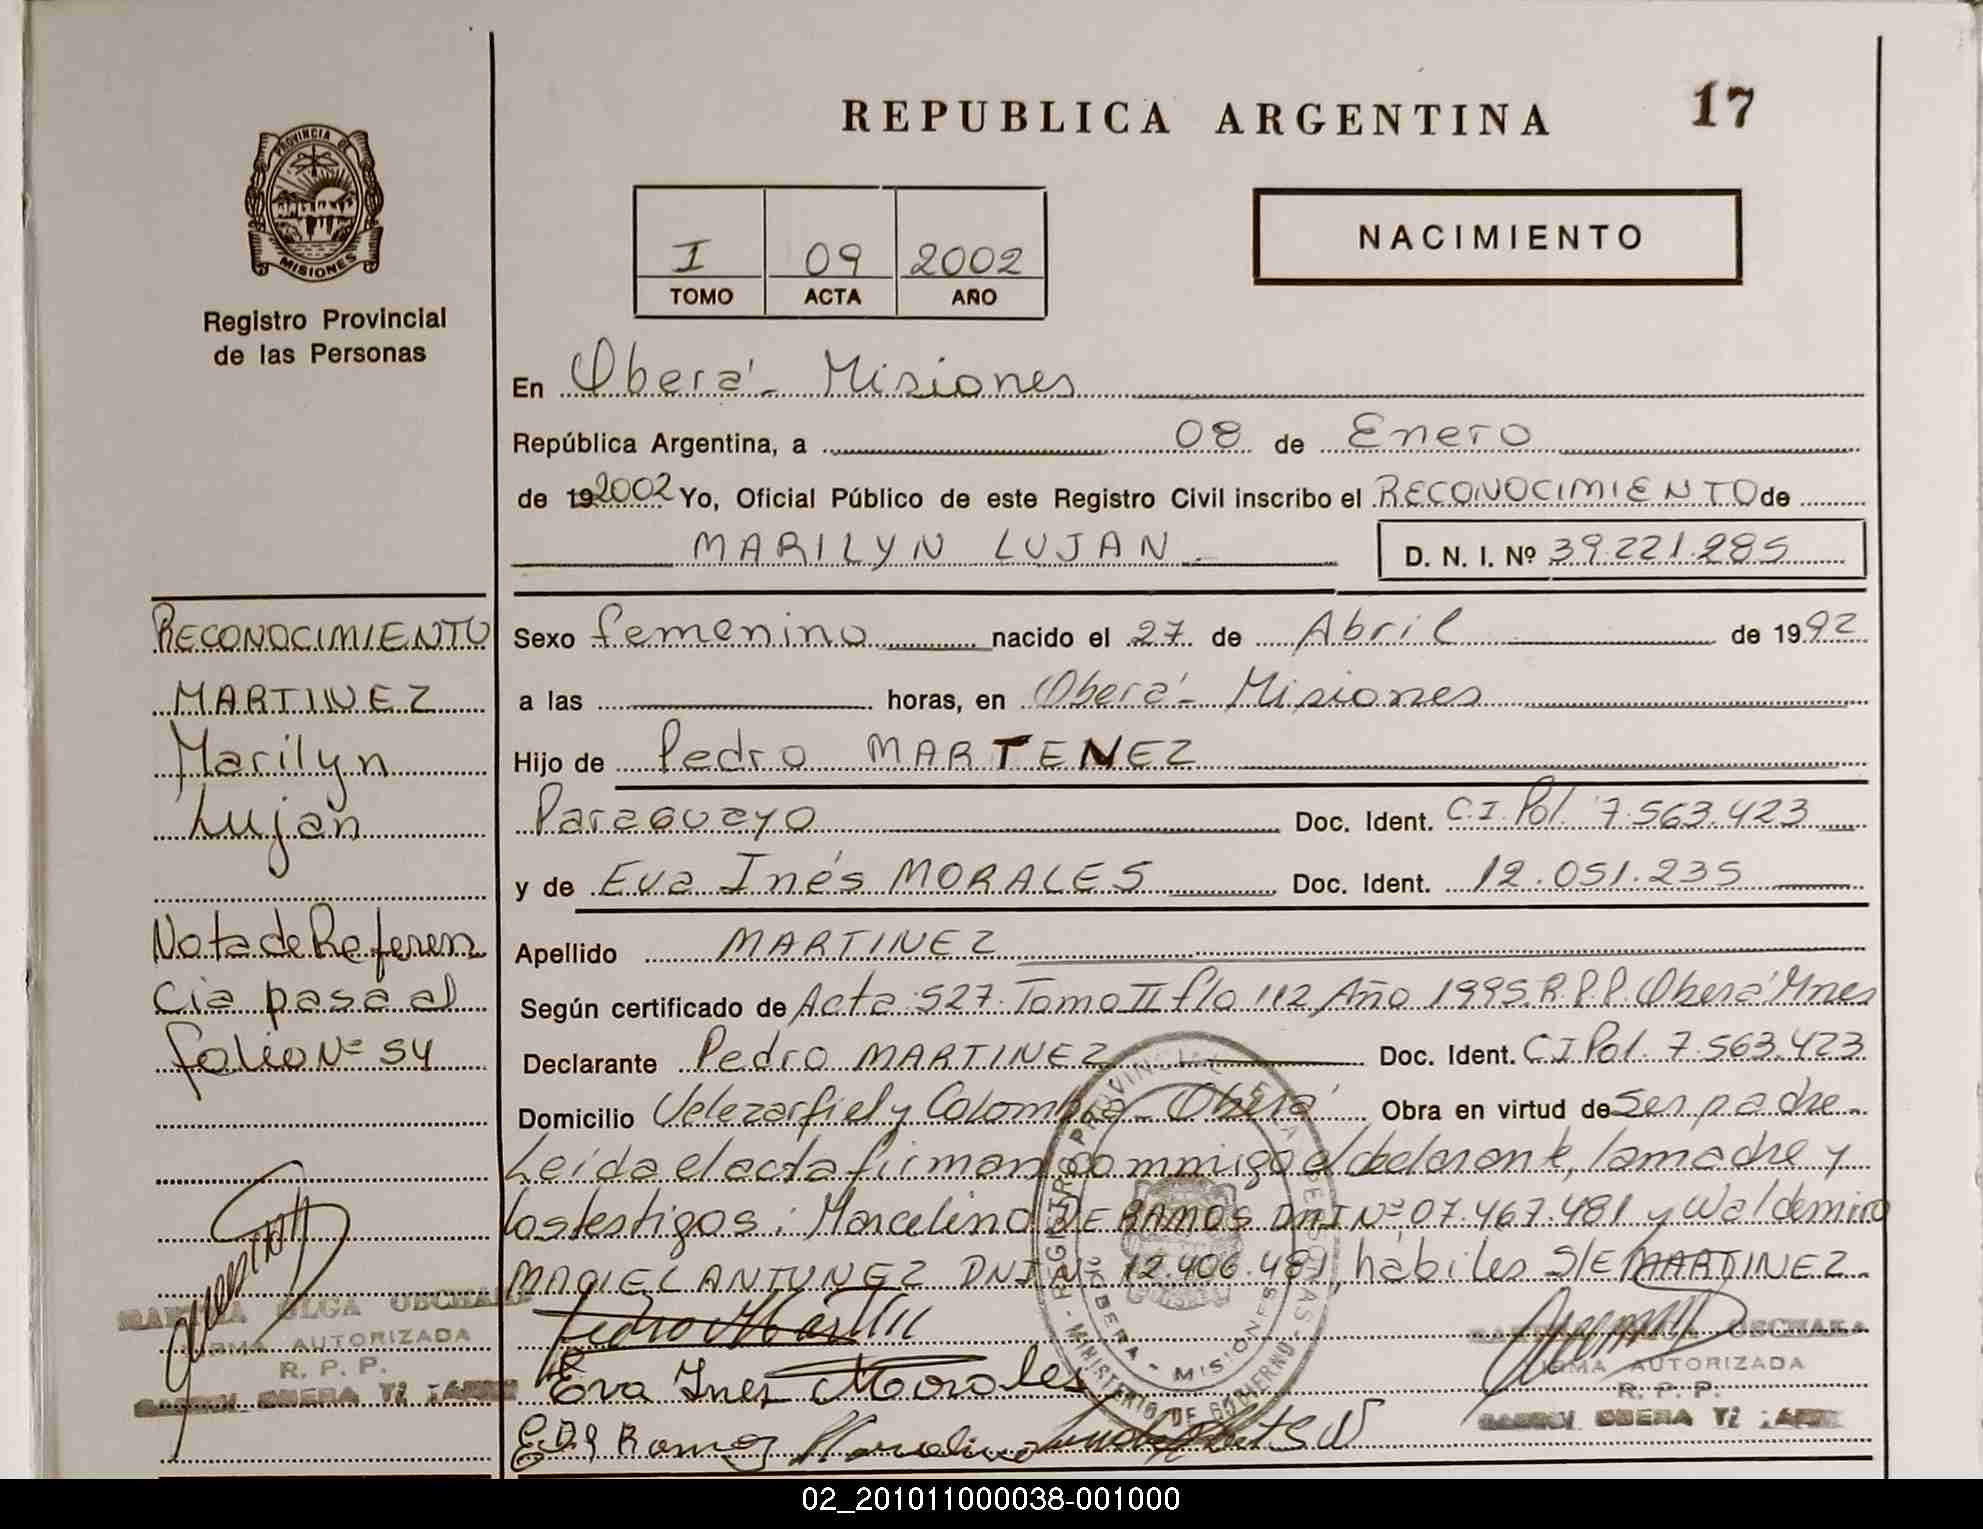 REPUBLICA ARGENTINA
17
PROVINCIA DE
MISIONES
Registro Provincial
de las Personas
I 09 2002
TOMO ACTA AÑO
NACIMIENTO
En Oberá - Misiones
República Argentina, a 08 de Enero
de 192002 Yo, Oficial Público de este Registro Civil inscribo el RECONOCIMIENTO de
MARILYN LUJAN.- D. N. I. Nº 39.221.285
Sexo femenino nacido el 27 de Abril de 1992
a las horas, en Oberá - Misiones
Hijo de Pedro MARTENEZ
Paraguayo Doc. Ident. C.I. Pol. 7.563.423
y de Eva Inés MORALES Doc. Ident. 12.051.235
Apellido MARTINEZ
Según certificado de Acta 527 Tomo II flo 112 Año 1995 R.P.P. Oberá Mnes
Declarante Pedro MARTINEZ Doc. Ident. C I Pol. 7.563.423
Domicilio Velezarfiel y Colombia - Oberá Obra en virtud de Ser padre.-
Leída el acta firman conmigo el declarante, la madre y
los testigos: Marcelino DE RAMOS DNI Nº 07.467.481 y Waldemiro
MACIEL ANTUNEZ DNI Nº 12.406.481, hábiles S/E MARTINEZ.
Pedro
Eva Ines Morales
Ramos
RECONOCIMIENTO
MARTINEZ
Marilyn
Lujan
Nota de Referen
cia pasa al
folio Nº 54
OLGA
FIRMA AUTORIZADA
R. P. P.
OBERA
FIRMA AUTORIZADA
R. P. P.
OBERA
REGISTRO PROVINCIAL DE LAS PERSONAS - MINISTERIO DE GOBIERNO -
OBERA - MISIONES
02_201011000038-001000